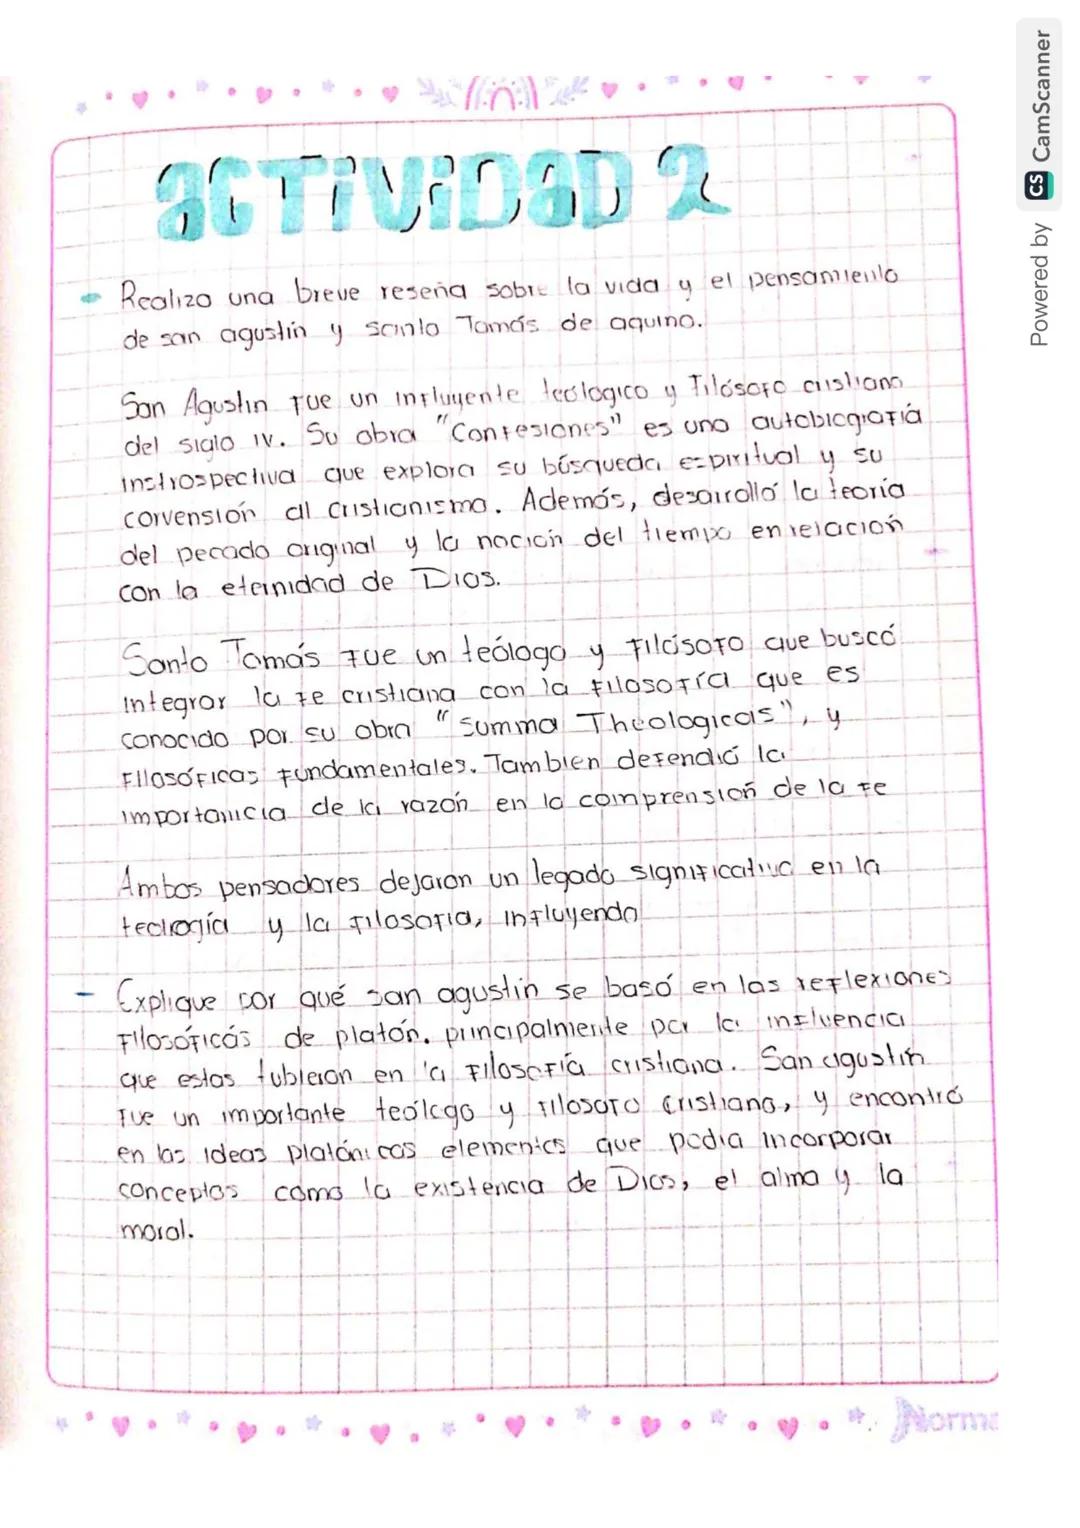 actividad 2
- Realizo una breve reseña sobre la vida y el pensamiento
de san agustín y santo Tomás de aquino.
San Agustin fue un influyente teólogico y filósofo cristiano
del siglo IV. Su obra "Confesiones" es una autobiografía
instrospectiva que explora su búsqueda espiritual y su
corvensión al cristianismo. Además, desarrolló la teoría
del pecado original y la noción del tiempo en relación
con la eternidad de Dios.
Santo Tomás fue un teólogo y filósofo que buscó
integrar la fe cristiana con la filosofía que es
conocido por su obra "Summa Theologicas", y
filosóficas fundamentales. Tambien defendió la
importancia de la razón en la comprensión de la fe
Ambos pensadores dejaron un legado significativo en la
teología y la filosofia, influyendo
- Explique por qué san agustin se basó en las reflexiones
filosóficás de platón. principalmente por la influencia
que estas tubieron en la filosofía cristiana. San agustín
fue un importante teólogo y filosofo cristiano, y encontró
en las ideas platónicas elementos que podia incorporar
conceptos como la existencia de Dios, el alma y la
moral.
Norma
Powered by CS CamScanner